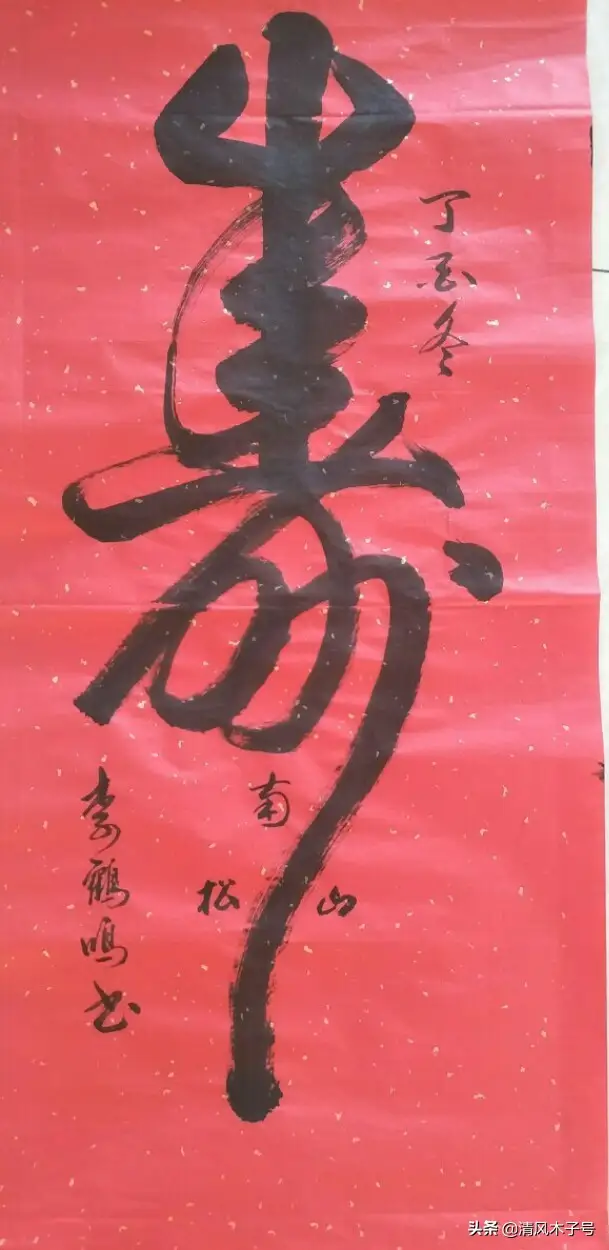 丁酉冬
壽
南
山
松
李鹤鸣书
头条 @清风木子号